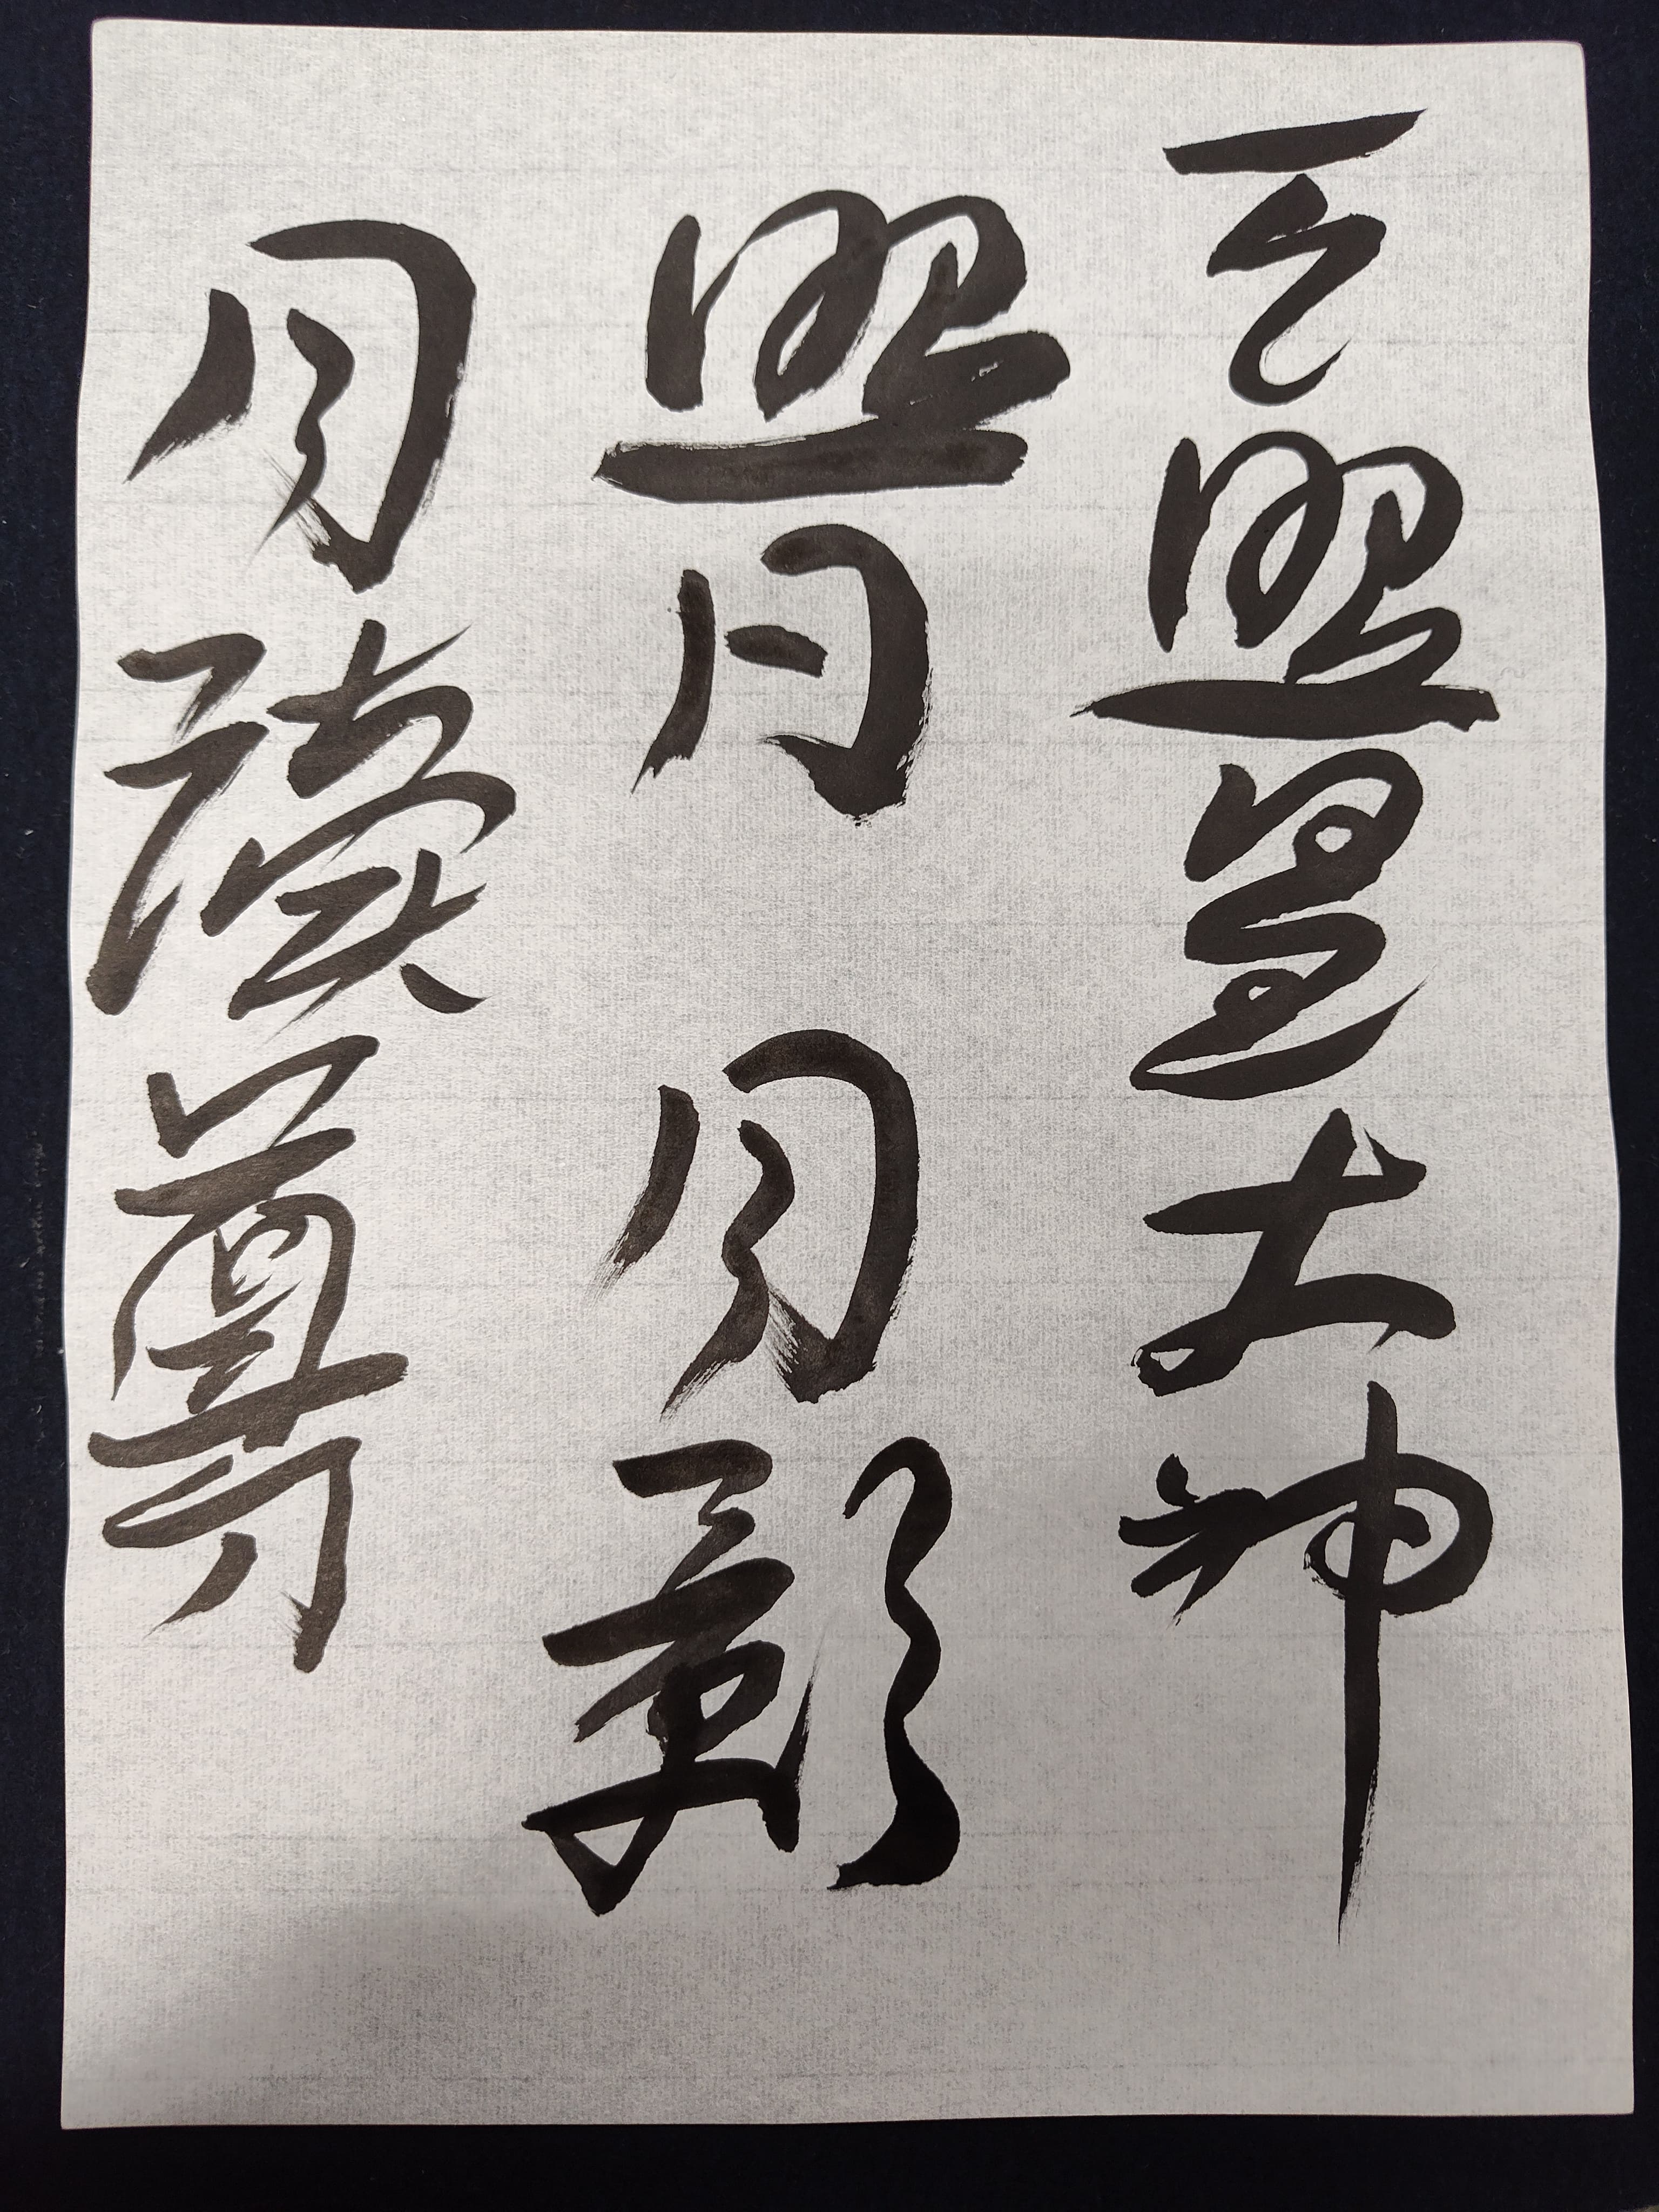 天照皇大神
照月 月影
月讀尊